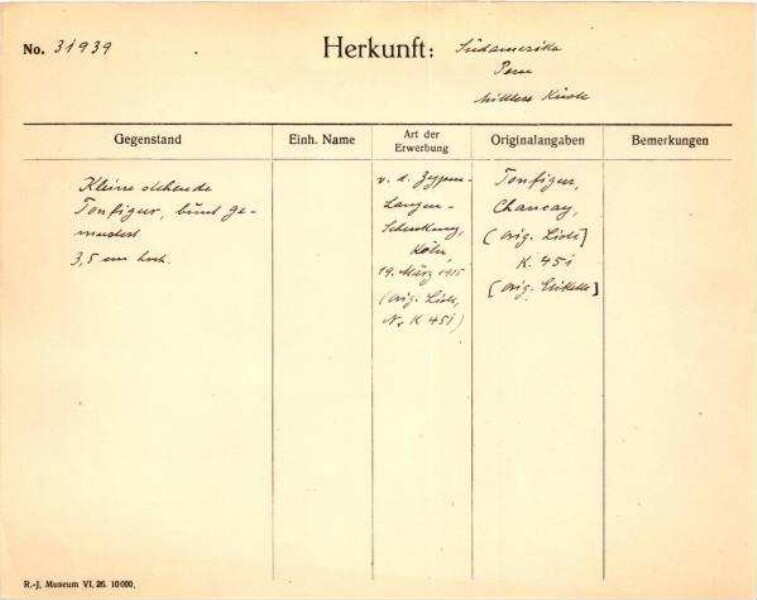 No. 31939
Herkunft: Südamerika
Peru
Mittlere Küste
Gegenstand
Einh. Name
Art der
Erwerbung
Originalangaben
Bemerkungen
Kleine stehende
Tonfigur, bunt ge-
mustert
3,5 cm hoch.
v. d. Zypen-
Langen-
Schenkung,
Köln,
19. März 1915
(orig. Liste,
Nr K 451)
Tonfigur,
Chancay,
(orig. Liste]
K. 451
[orig. Etikette]
R.-J. Museum VI. 26. 10000.